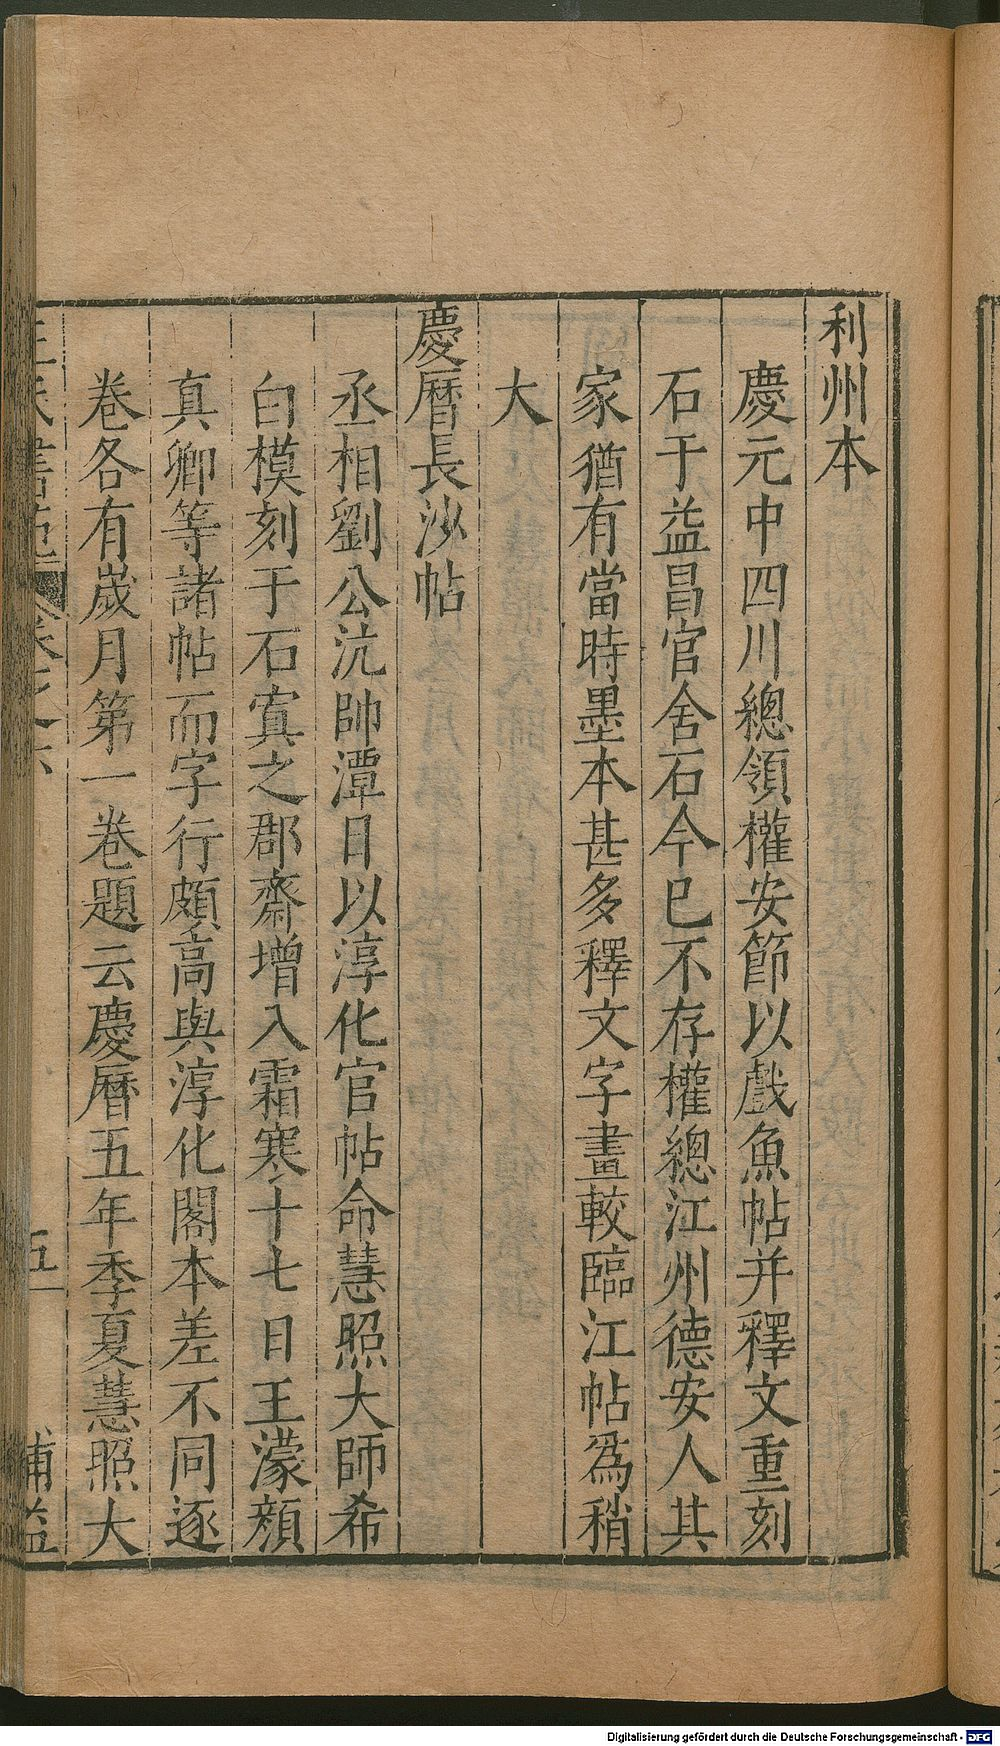 利州本
慶元中四川總領權安節以戲魚帖并釋文重刻
石于益昌官舍石今已不存權總江州德安人其
家猶有當時墨本甚多釋文字畫較臨江帖爲稍
大
慶曆長沙帖
丞相劉公沆帥潭日以淳化官帖命慧照大師希
白模刻于石寘之郡齋增入霜寒十七日王濛顔
真卿等諸帖而字行頗高與淳化閣本差不同逐
卷各有歲月第一卷題云慶曆五年季夏慧照大
王氏書苑 卷之六 五 補益
Digitalisierung gefördert durch die Deutsche Forschungsgemeinschaft - DFG